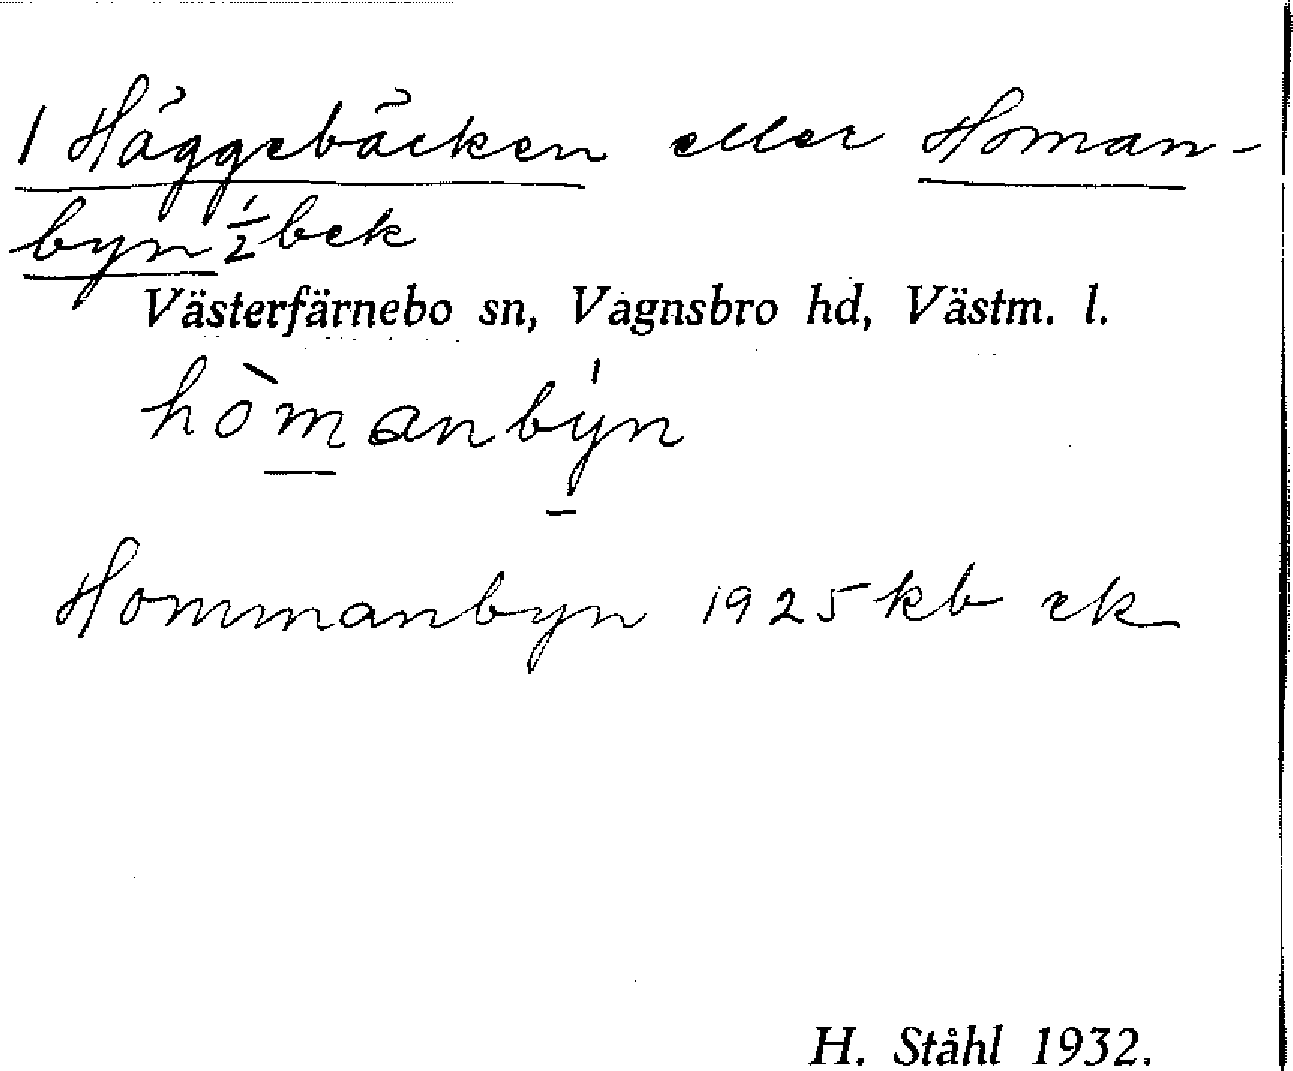 1 Häggebäcken eller Homan-
byn ½ bek
Västerfärnebo sn, Vagnsbro hd, Västm. l.
hòmanbýn
Hommanbyn 1925 kb ek
H. Ståhl 1932.